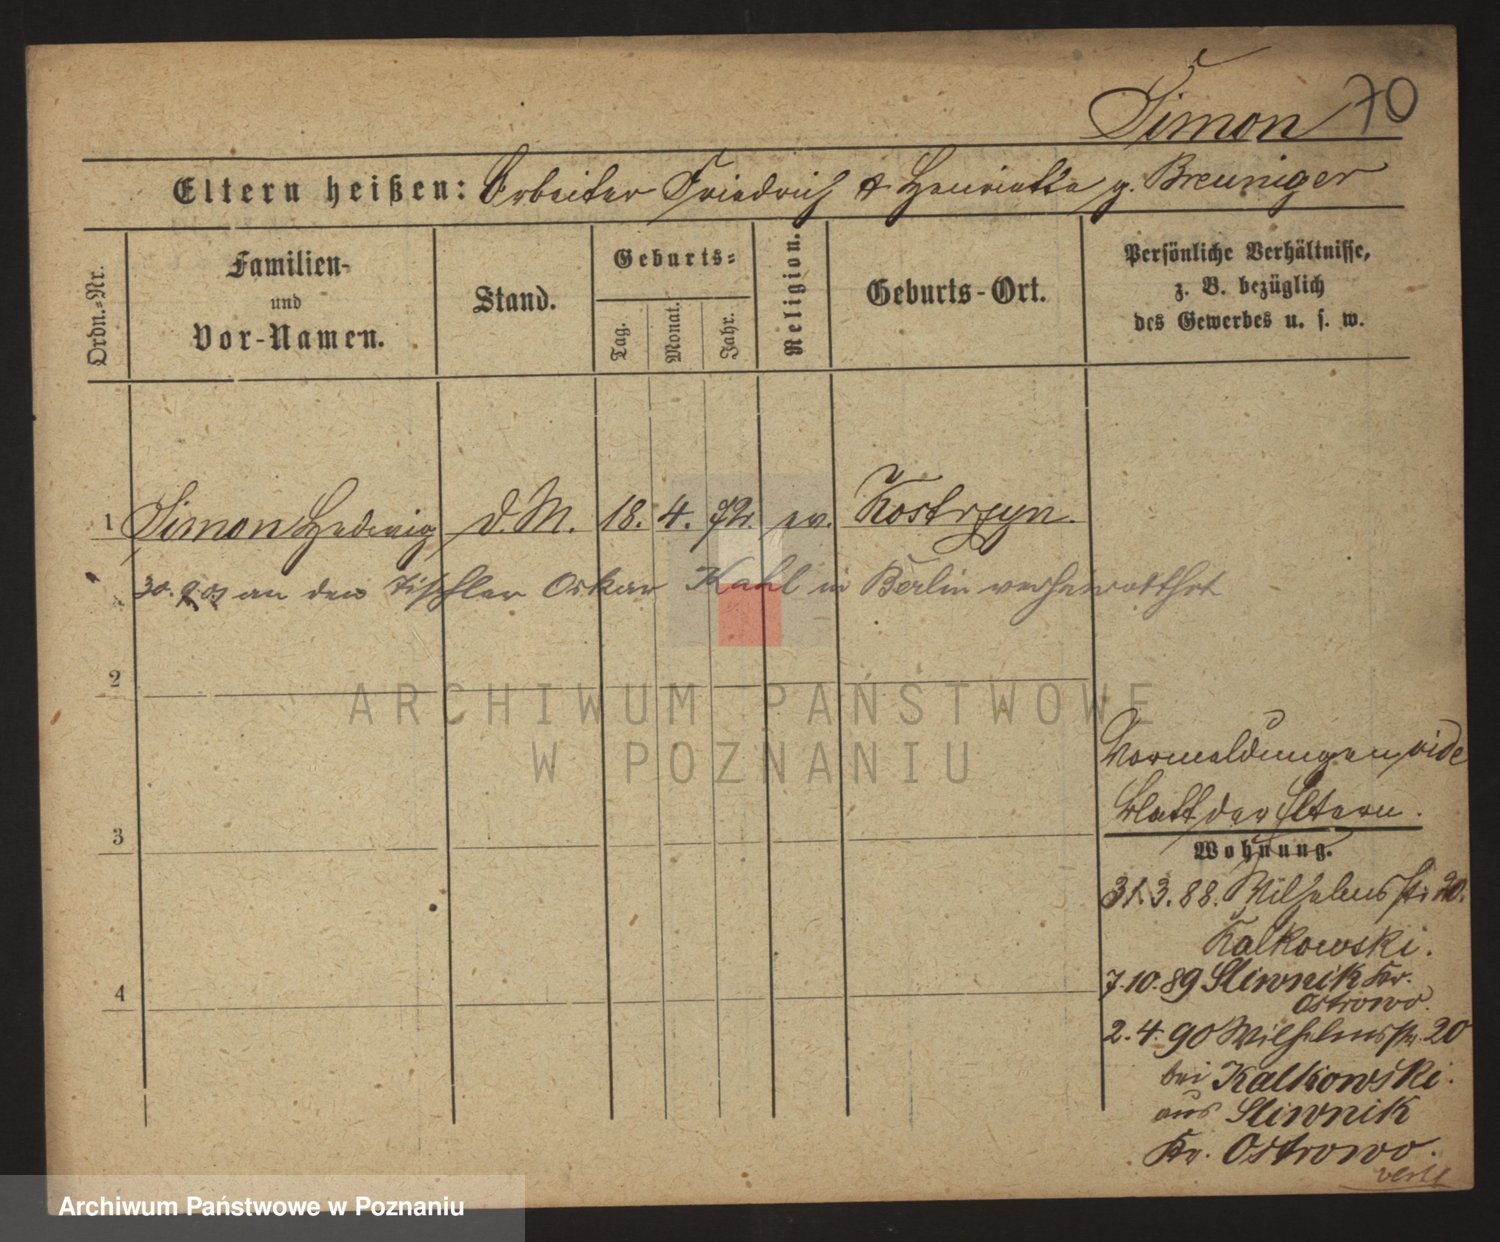 Simon 70
Eltern heißen: Arbeiter Friedrich & Henriette g. Breuniger
Ordn.-Nr.
Familien-
und
Vor-Namen.
Stand.
Geburts-
Tag.
Monat.
Jahr.
Religion.
Geburts-Ort.
Persönliche Verhältnisse,
z. B. bezüglich
des Gewerbes u. s. w.
1 Simon Hedwig d. M. 18. 4. 72 ev. Kostrzyn.
30. 9. 03 an den Tischler Oskar Kahl in Berlin verheirathet
2
3
4
Vormeldungen vide
Blatt der Eltern.
Wohnung.
31.3.88. Wilhelmsstr 20.
Kalkowski.
7.10.89 Sliwnik Kr.
Ostrowo.
2.4.90 Wilhelmsstr. 20
bei Kalkowski.
aus Sliwnik
Kr. Ostrowo.
ARCHIWUM PAŃSTWOWE
W POZNANIU
Archiwum Państwowe w Poznaniu